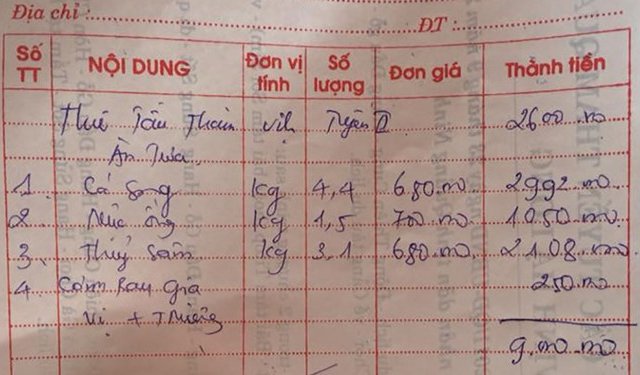 Địa chỉ : ĐT :
Số TT NỘI DUNG Đơn vị tính Số lượng Đơn giá Thành tiền
Thuê Tầu Tham Vịnh Tuyến II 2600.000
Ăn Trưa
1 Cá Song kg 4,4 680.000 2992.000
2 Mực ống kg 1,5 700.000 1050.000
3 Thuỷ Sâm kg 3,1 680.000 2108.000
4 Cơm Rau Gia 250.000
Vị +
9.000.000